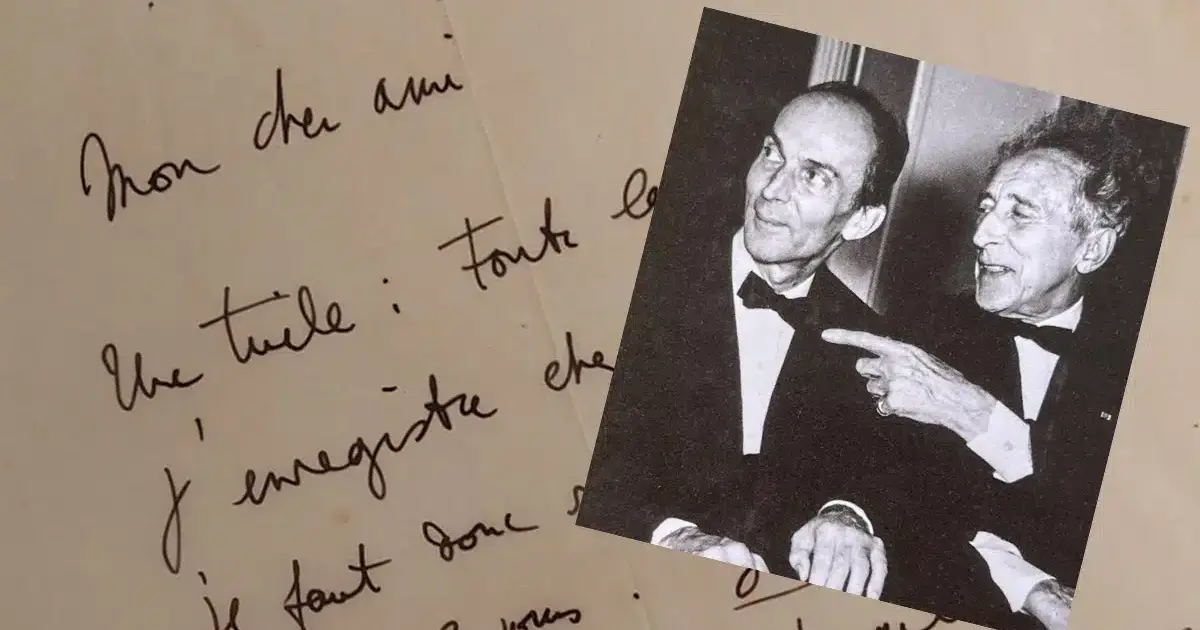 Mon cher ami
Une tuile : toute la
j'enregistre che
il faut donc
vous .